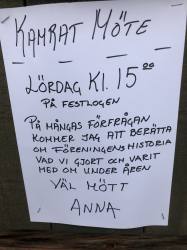 KAMRAT MÖTE
LÖRDAG KL. 15 00
PÅ FESTLOGEN
PÅ MÅNGAS FÖRFRÅGAN
KOMMER JAG ATT BERÄTTA
OM FÖRENINGENS HISTORIA
VAD VI GJORT OCH VARIT
MED OM UNDER ÅREN
VÄL MÖTT
ANNA